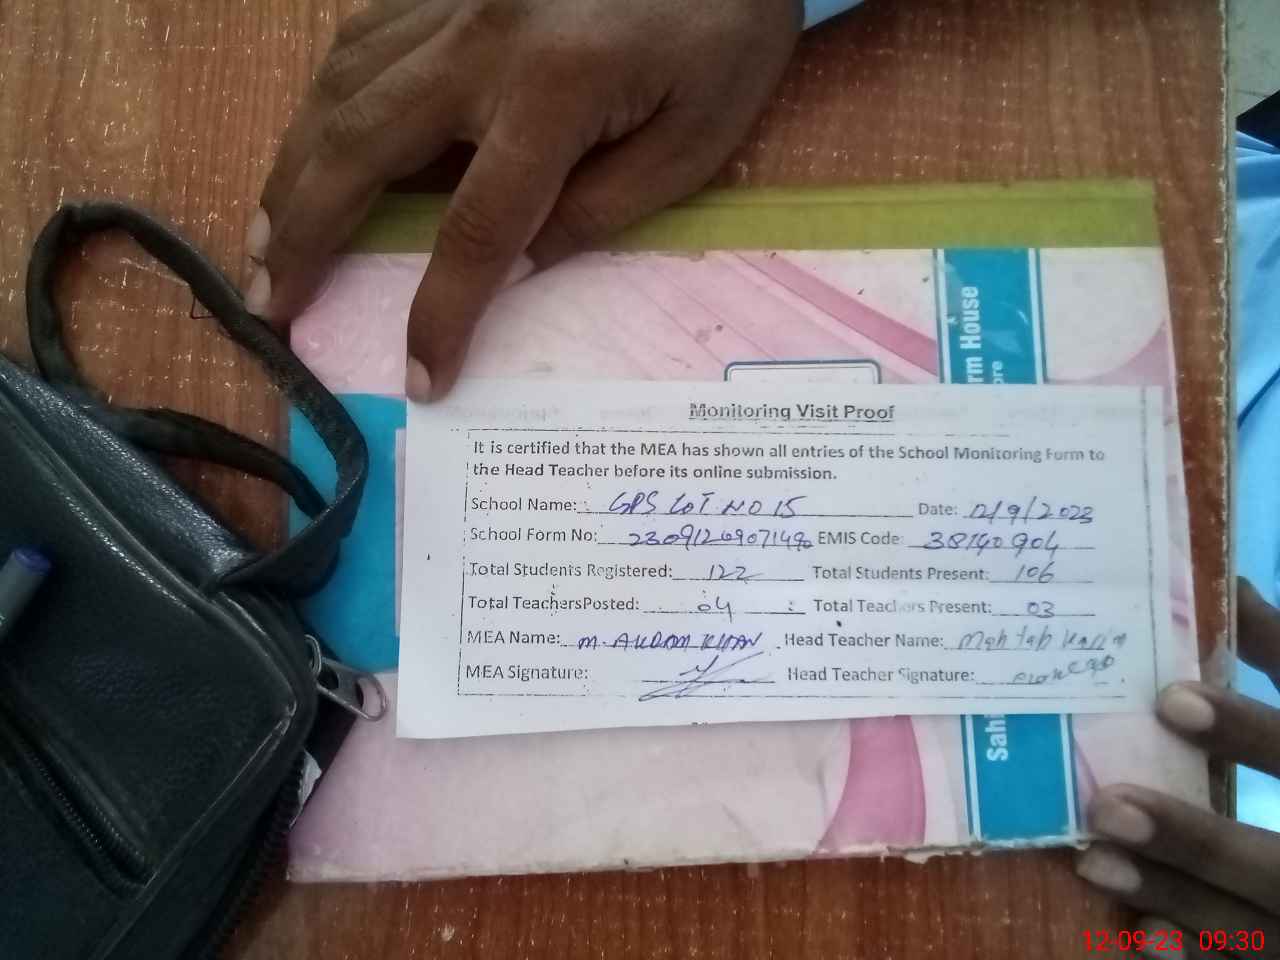 rm House
ore
Monitoring Visit Proof
It is certified that the MEA has shown all entries of the School Monitoring Form to
the Head Teacher before its online submission.
School Name: GPS LOT NO 15 Date: 12/9/2023
School Form No: EMIS Code: 38140904
Total Students Registered: 122 Total Students Present: 106
Total TeachersPosted: 04 Total Teachers Present: 03
MEA Name: M. AKRAM KHAN Head Teacher Name: Mahtab
MEA Signature: Head Teacher Signature:
Sahi
12-09-23 09:30